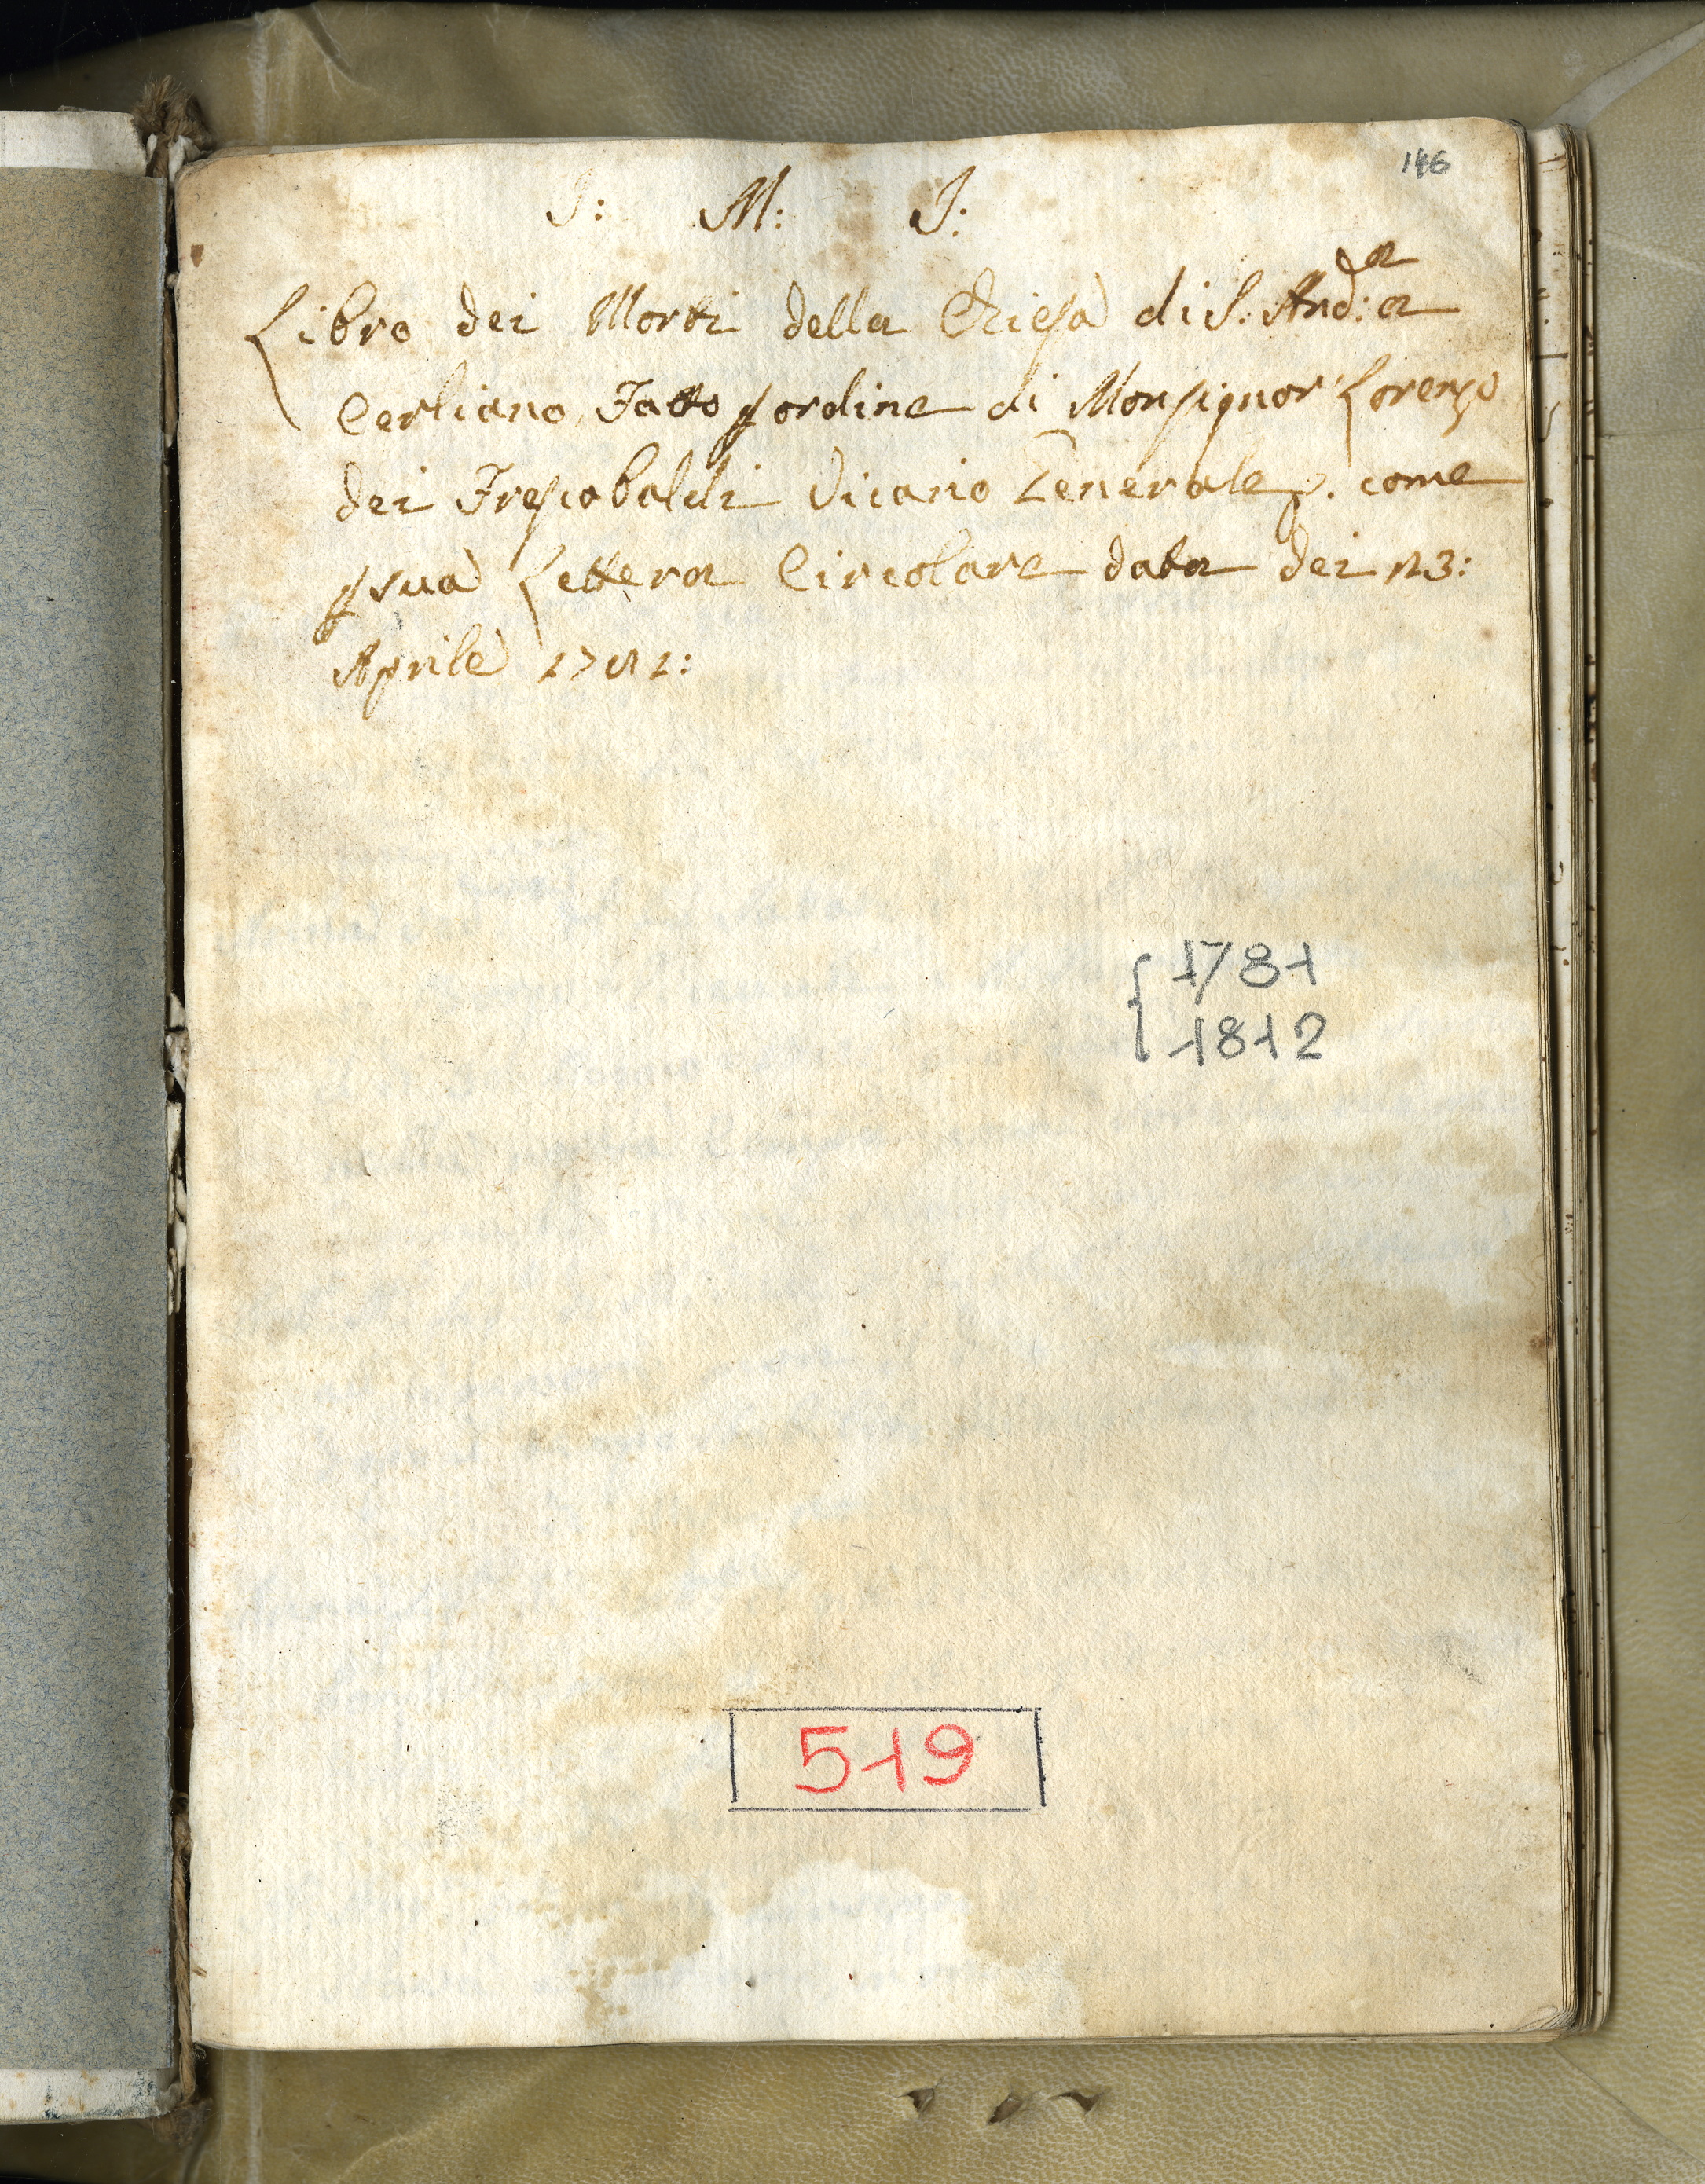 146
J: M: J:
Libro dei Morti della Chiesa di S: And:a a
Cerliano, Fatto p ordine di Monsignor Lorenzo
dei Frescobaldi Vicario Generale, come
p sua Lettera Circolare data dei 23:
Aprile 1781:
1781
1812
519